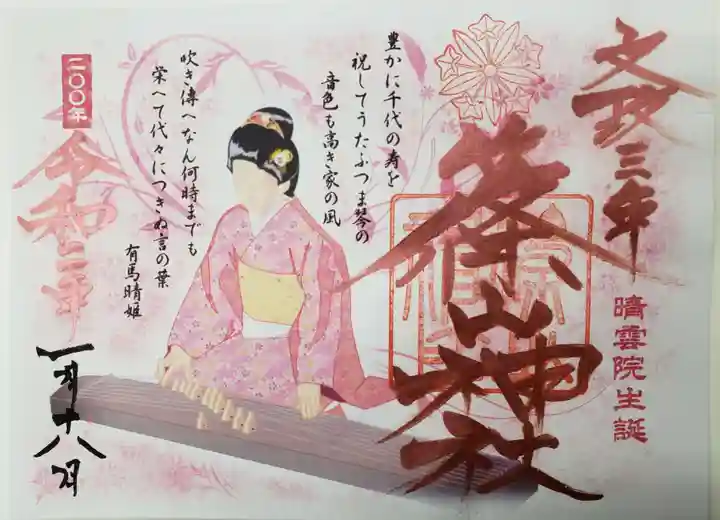 文政三年
晴雲院生誕
篠山神社
豊かに千代の寿を
祝してうたふつま琴の
音色も高き家の風
吹き傳へなん何時までも
栄へて代々につきぬ言の葉
有馬晴姫
二〇〇年
令和二年
一月十八日